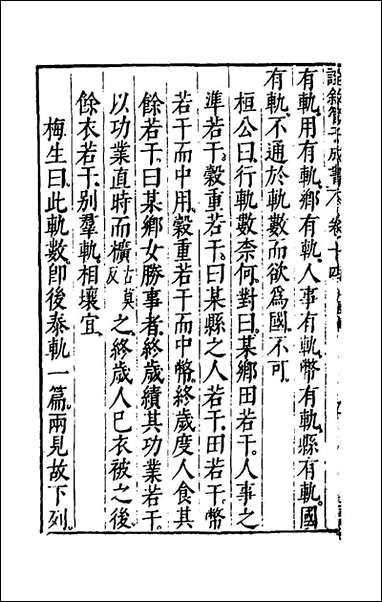 詮敘管子成書 卷十四
有軌用有軌鄉有軌人事有軌幣有軌縣有軌國
有軌不通於軌數而欲爲國不可
桓公曰行軌數柰何對曰某鄉田若干人事之
準若干穀重若干曰某縣之人若干田若干幣
若干而中用穀重若干而中幣終歲度人食其
餘若干曰某鄉女勝事者終歲績其功業若干
以功業直時而櫎古莫反之終歲人已衣被之後
餘衣若干別羣軌相壤宜
梅生曰此軌數卽後泰軌一篇兩見故下列